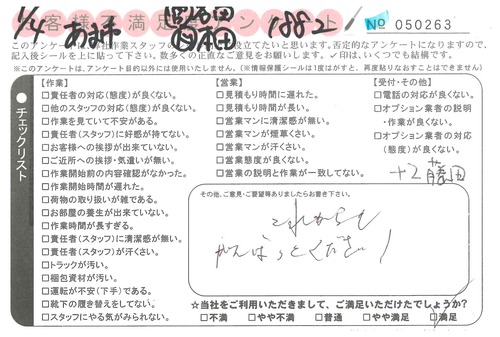 1/4 あま市 1882
No 050263
このアンケートに
作業スタッフの
役立てたいと思います。否定的なアンケートになりますので、
記入後シールを上に貼って下さい。数多くの正直なご意見をお願いします。✓印は、いくつでも結構です。
※このアンケートは、アンケート目的以外には使用いたしません。(※情報保護シールは1度はがすと、再度貼りなおすことはできません)
チェックリスト
【作業】
□責任者の対応(態度)が良くない。
□他のスタッフの対応(態度)が良くない。
□作業を見ていて不安がある。
□責任者(スタッフ)に好感が持てない。
□お客様への挨拶が出来ていない。
□ご近所への挨拶・気遣いが無い。
□作業開始前の内容確認がなかった。
□作業開始時間が遅れた。
□荷物の取り扱いが雑である。
□お部屋の養生が出来ていない。
□作業時間が長すぎる。
□責任者(スタッフ)に清潔感が無い。
□責任者(スタッフ)が汗くさい。
□トラックが汚い。
□梱包資材が汚い。
□運転が不安(下手)である。
□靴下の履き替えをしてない。
□スタッフにやる気がみられない。
【営業】
□見積もり時間に遅れた。
□見積もり時間が長い。
□営業マンに清潔感が無い。
□営業マンが煙草くさい。
□営業マンが汗くさい。
□営業態度が良くない。
□営業の説明と作業が一致してない。
【受付・その他】
□電話の対応が良くない。
□オプション業者の説明
・作業が良くない。
□オプション業者の対応
(態度)が良くない。
+2 藤田
その他、ご意見・ご要望等ありましたらお書き下さい。
これからも
がんばってください!
☆当社をご利用いただきまして、ご満足いただけたでしょうか?
□不満 □やや不満 □普通 □やや満足 □満足